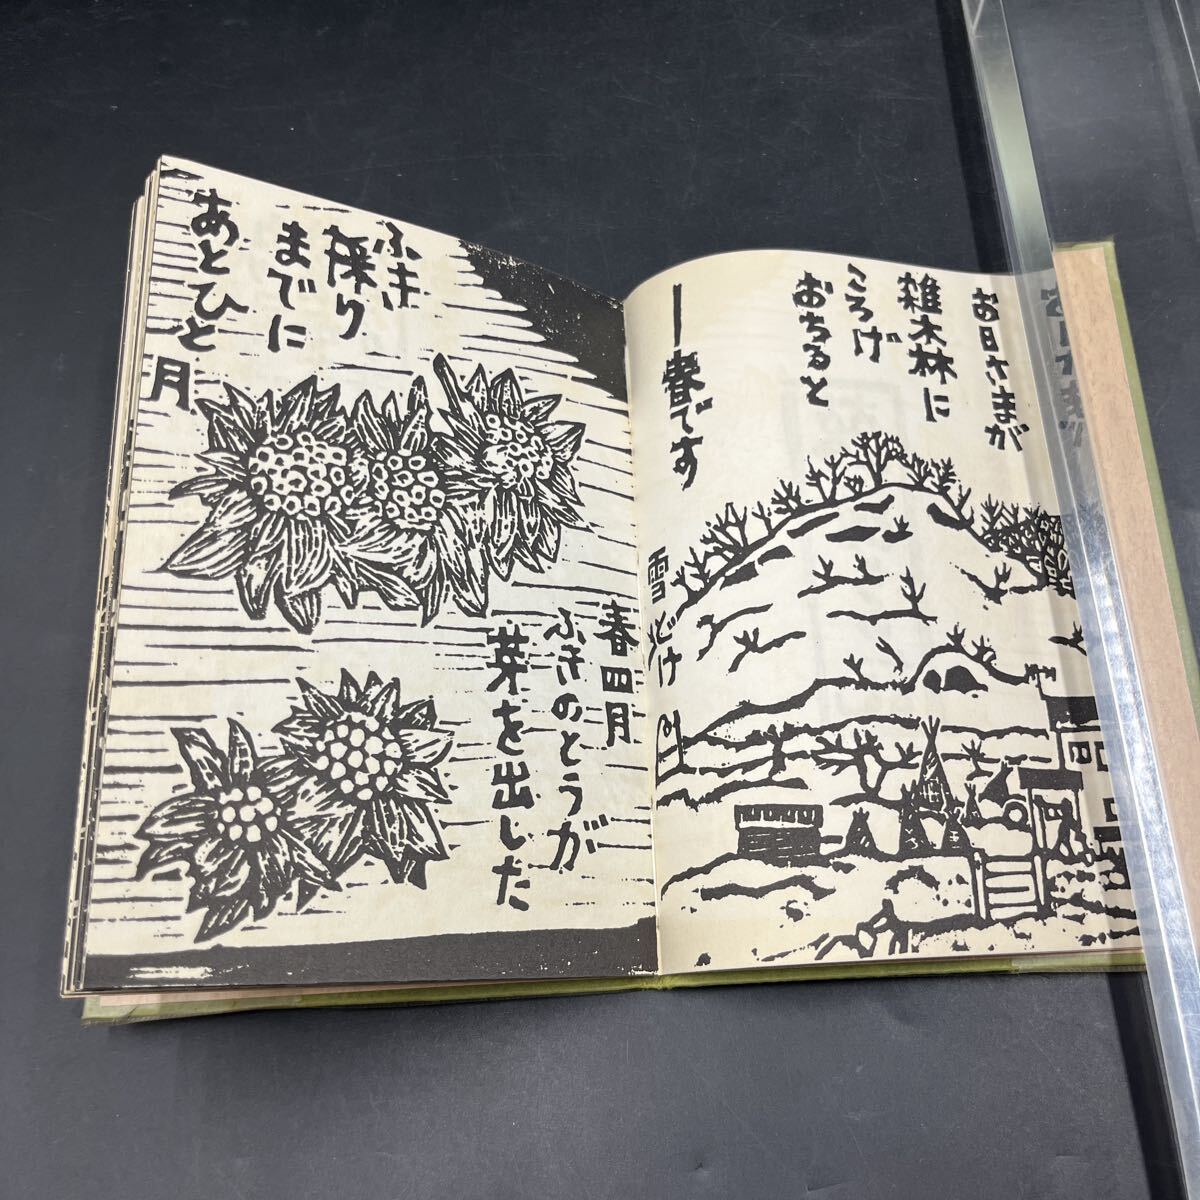 お日さまが
雑木林に
ころげ
おちると
—春です
雪どけ
春四月
ふきのとうが
芽を出した
ふき
採り
までに
あとひと月